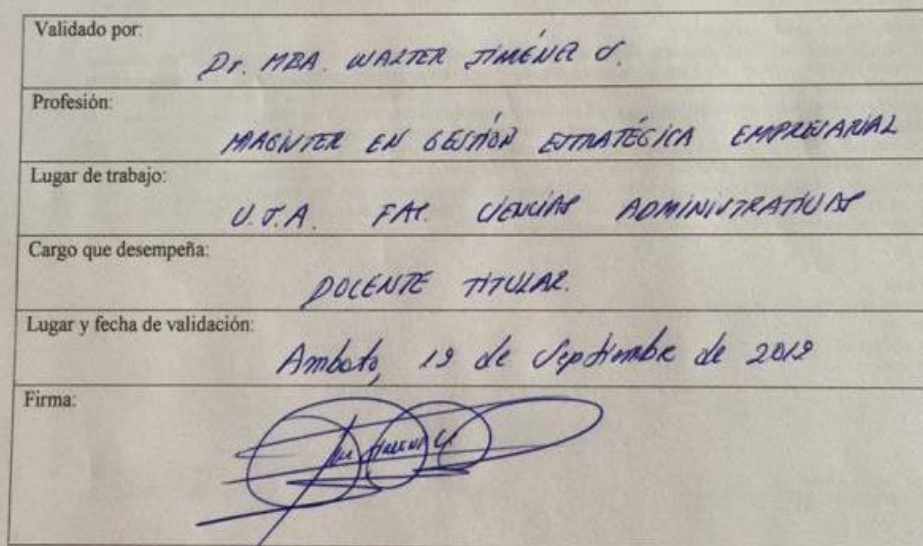 Validado por:
Dr. MBA. WALTER JIMÉNEZ S.
Profesión:
MAGISTER EN GESTIÓN ESTRATÉGICA EMPRESARIAL
Lugar de trabajo:
U.T.A. FAC. CIENCIAS ADMINISTRATIVAS
Cargo que desempeña:
DOCENTE TITULAR.
Lugar y fecha de validación:
Ambato, 19 de Septiembre de 2019
Firma: